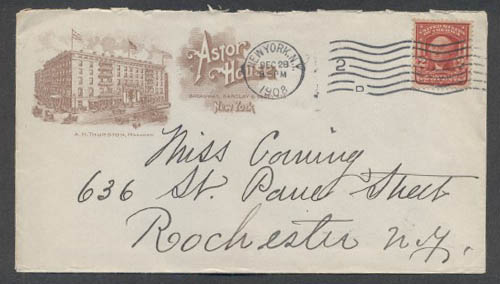 Astor
House
BROADWAY, BARCLAY &
New York
A. H. THURSTON, MANAGER
NEW YORK, N.Y.
DEC 28
PM
1908
2
D
UNITED STATES
2 2
Miss Corning
636 St. Paul Street
Rochester N.Y.